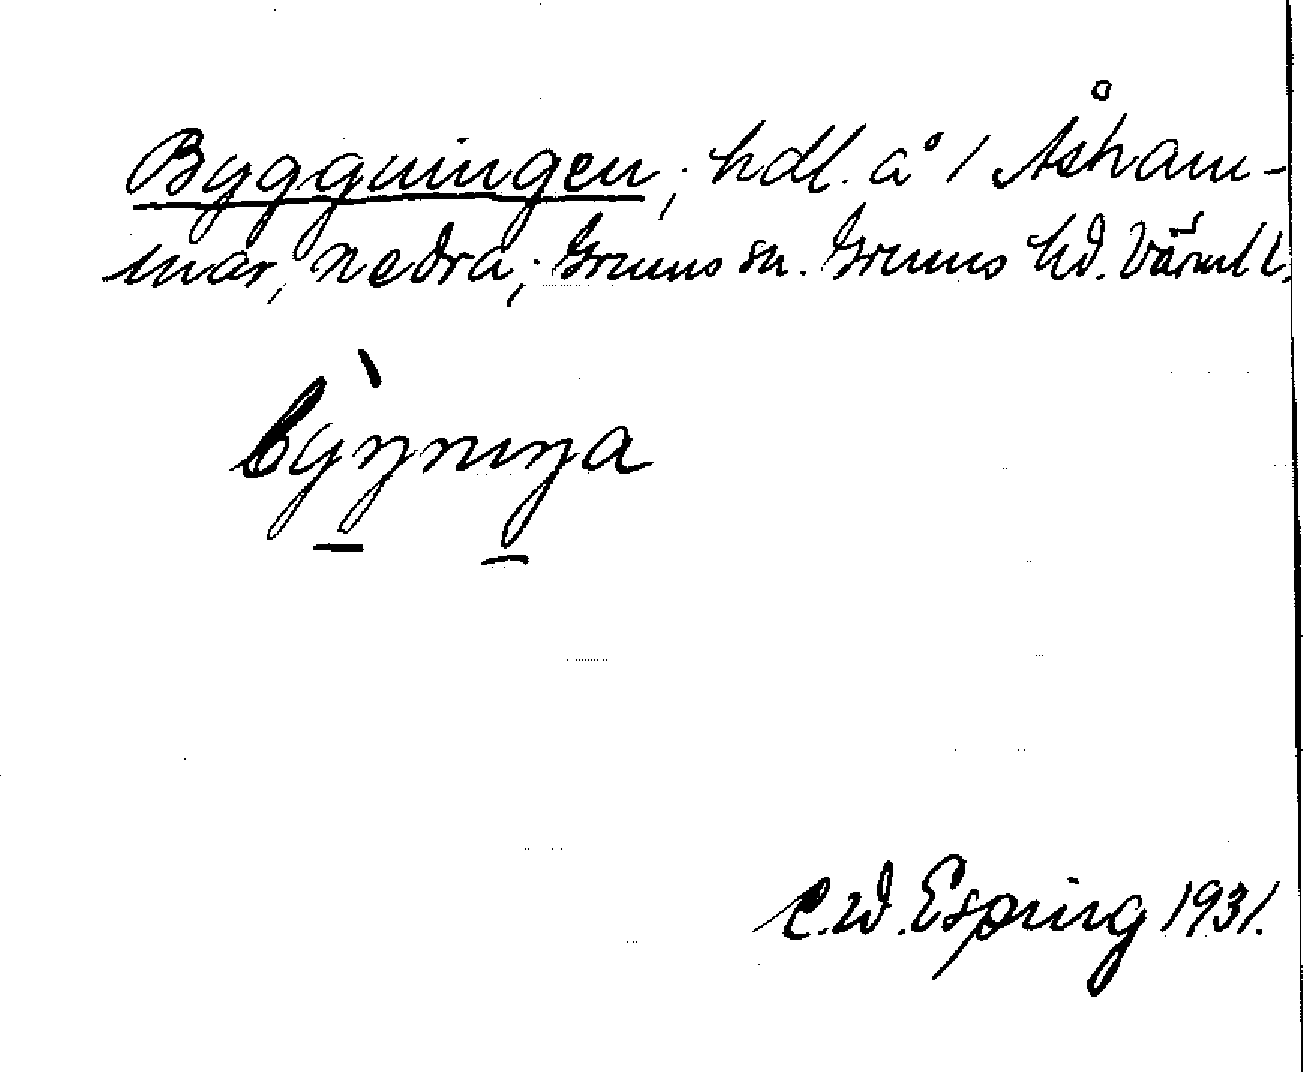 Byggningen; hdl. å 1/ Åsham-
mar, nedra; Grums sn. Grums hd. Värml l.
bỳŋniŋa
C.W. Espring 1931.